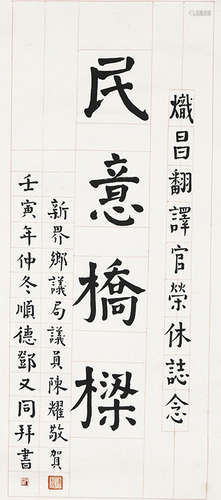 熾昌翻譯官榮休誌念
民意橋樑
新界鄉議局議員陳耀敬賀
壬寅年仲冬順德鄧又同拜書